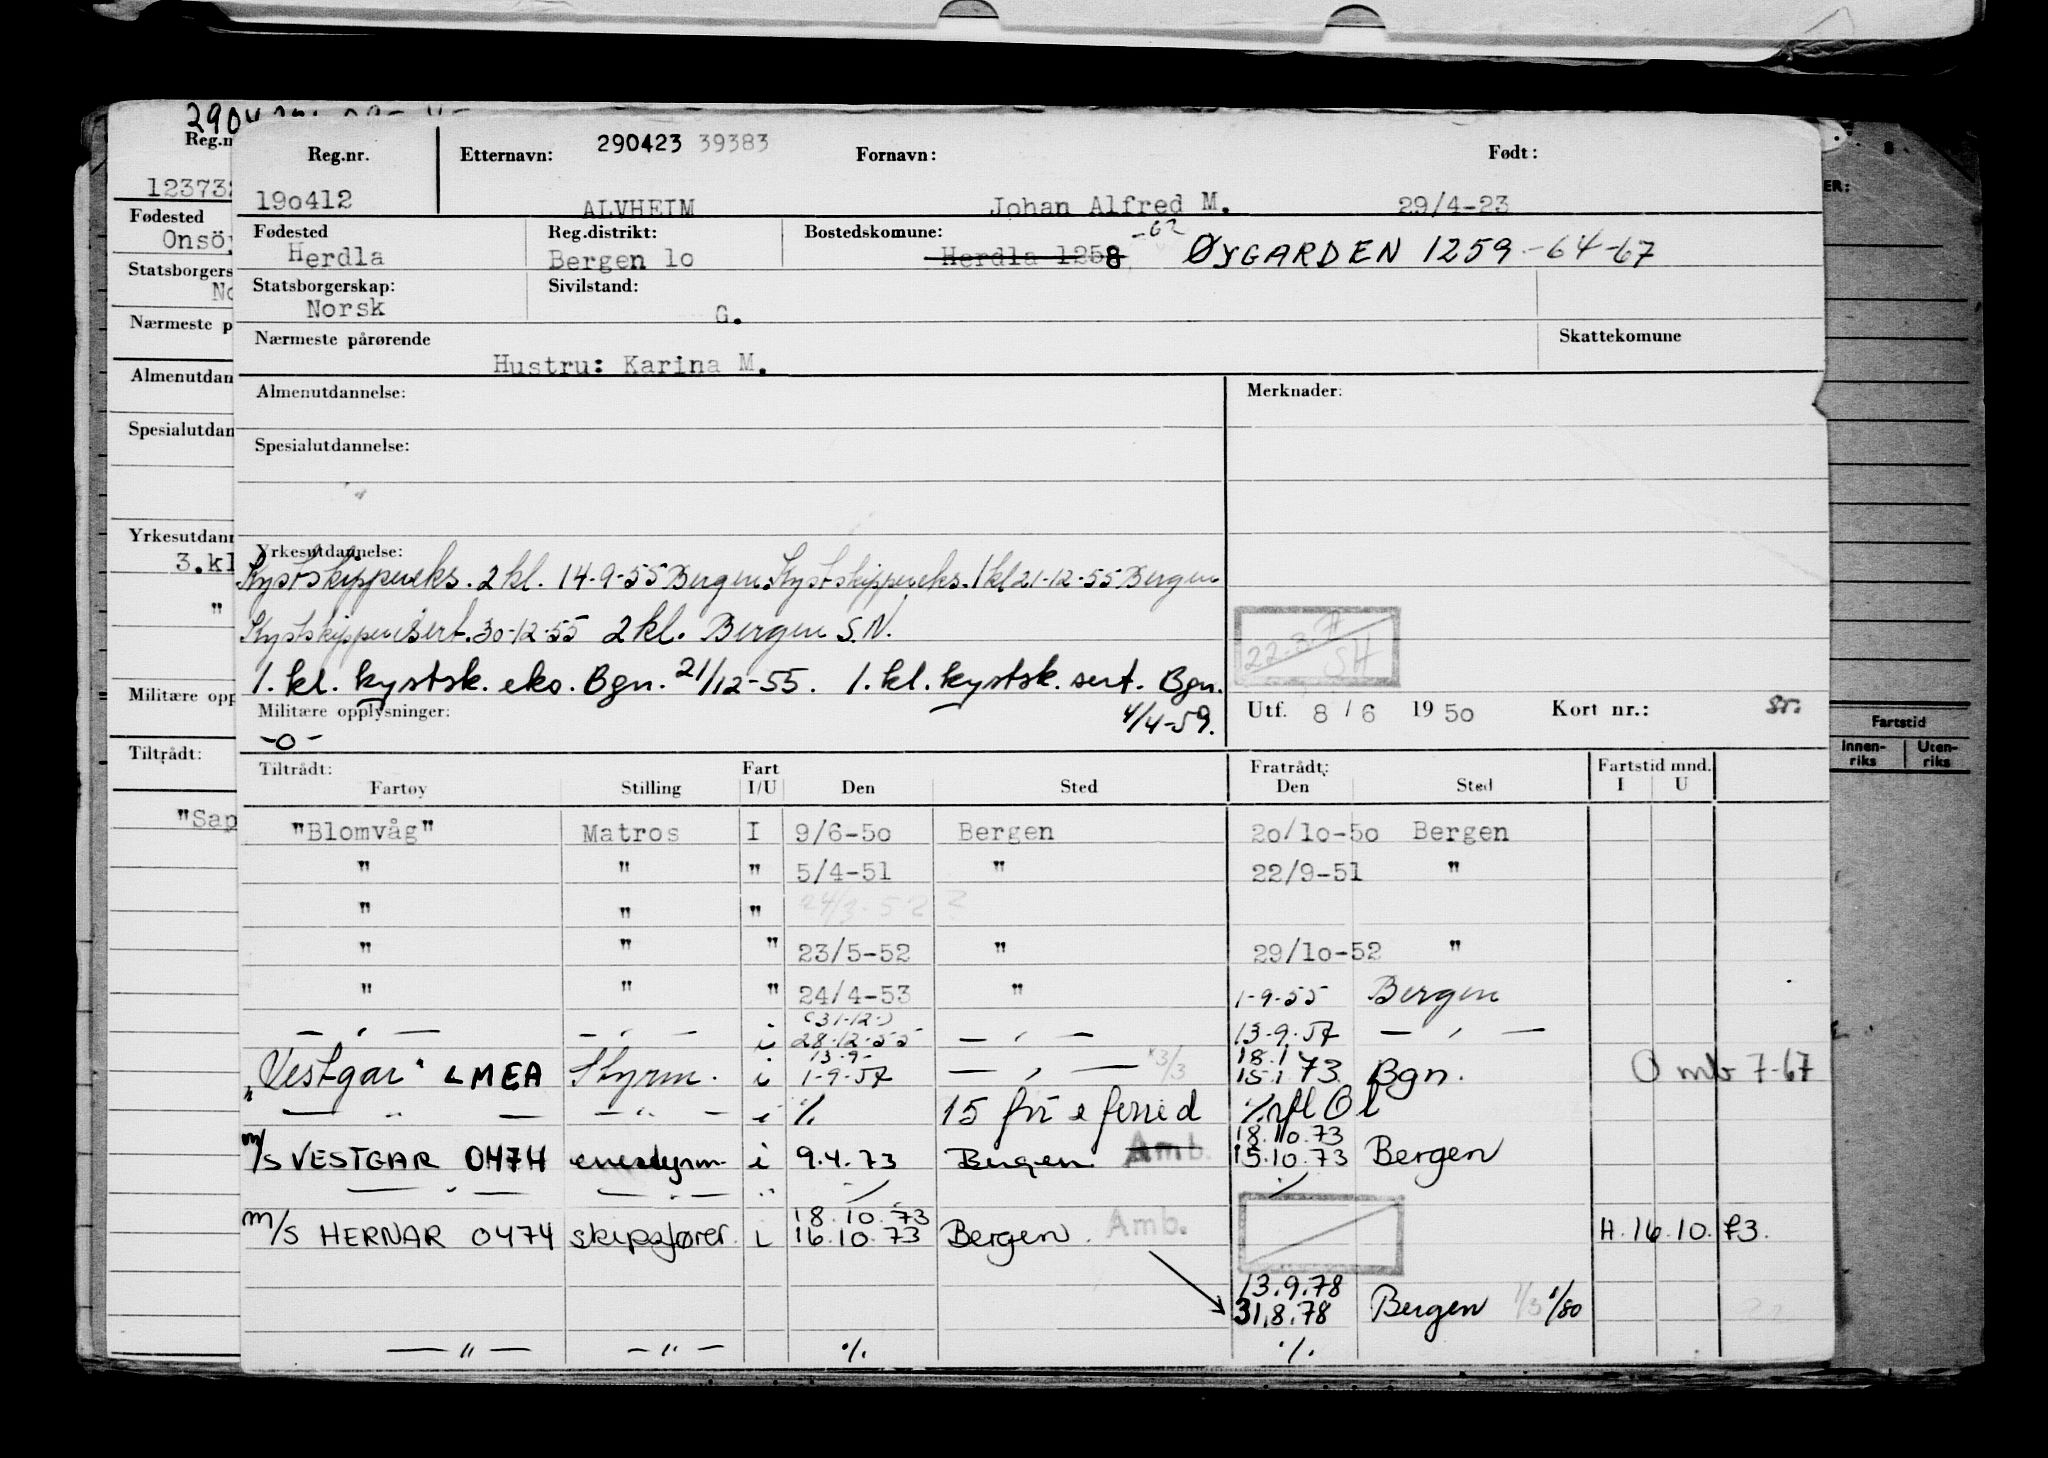 Reg.nr. Etternavn: 290423 39383 Fornavn: Født:
190412 ALVHEIM Johan Alfred M. 29/4-23
Fødested Reg.distrikt: Bostedskomune: -62
Herdla Bergen 10 Herdla 1258 ØYGARDEN 1259 -64-67
Statsborgerskap: Sivilstand:
Norsk G.
Nærmeste pårørende Skattekomune
Hustru: Karina M.
Almenutdannelse: Merknader:
Spesialutdannelse:
Yrkesutdannelse:
Kystskippereks. 2 kl. 14-9-55 Bergen. Kystskippereks. 1 kl 21-12-55 Bergen
Kystskippersert. 30-12-55 2 kl. Bergen S.N.
1. kl. kystsk. eks. Bgn. 21/12-55. 1. kl. kystsk. sert. Bgn.
4/4-59.
Militære opplysninger:
-0-
Utf. 8 / 6 19 50 Kort nr.:
Tiltrådt: Fart Fratrådt: Fartstid mnd.
Fartøy Stilling I/U Den Sted Den Sted I U
"Blomvåg" Matros I 9/6-50 Bergen 20/10-50 Bergen
" " " 5/4-51 " 22/9-51 "
" " " 24/3-52 ?
" " " 23/5-52 " 29/10-52 "
" " " 24/4-53 " 1-9-55 Bergen
(31-12-)
— " — — " — i 28-12-55 — " — 13-9-57 — " —
13-9- 18.1
"Vestgar" LMEA Styrm. i 1-9-57 — " — 3/3 15.1 73 Bgn. O mb 7-67
— " — — " — i ·/. 15 ·/.
18.10.73
m/s VESTGAR 0474 enestyrm. i 9.4.73 Bergen Amb. 15.10.73 Bergen
— " — — " — " ·/. ·/.
18.10.73
m/s HERNAR 0474 skipsfører. i 16.10.73 Bergen. Amb. H.16.10.73.
13.9.78
31.8.78 Bergen 1/3 1/80
— " — — " — ·/. ·/.
Reg.n
Fødested
Onsöy
Statsborgers
No
Nærmeste p
Almenutdan
Spesialutdan
Yrkesutdann
3.kl
"
Militære opp
Tiltrådt:
"Sap
ER:
Fartstid
Innen-riks Uten-riks